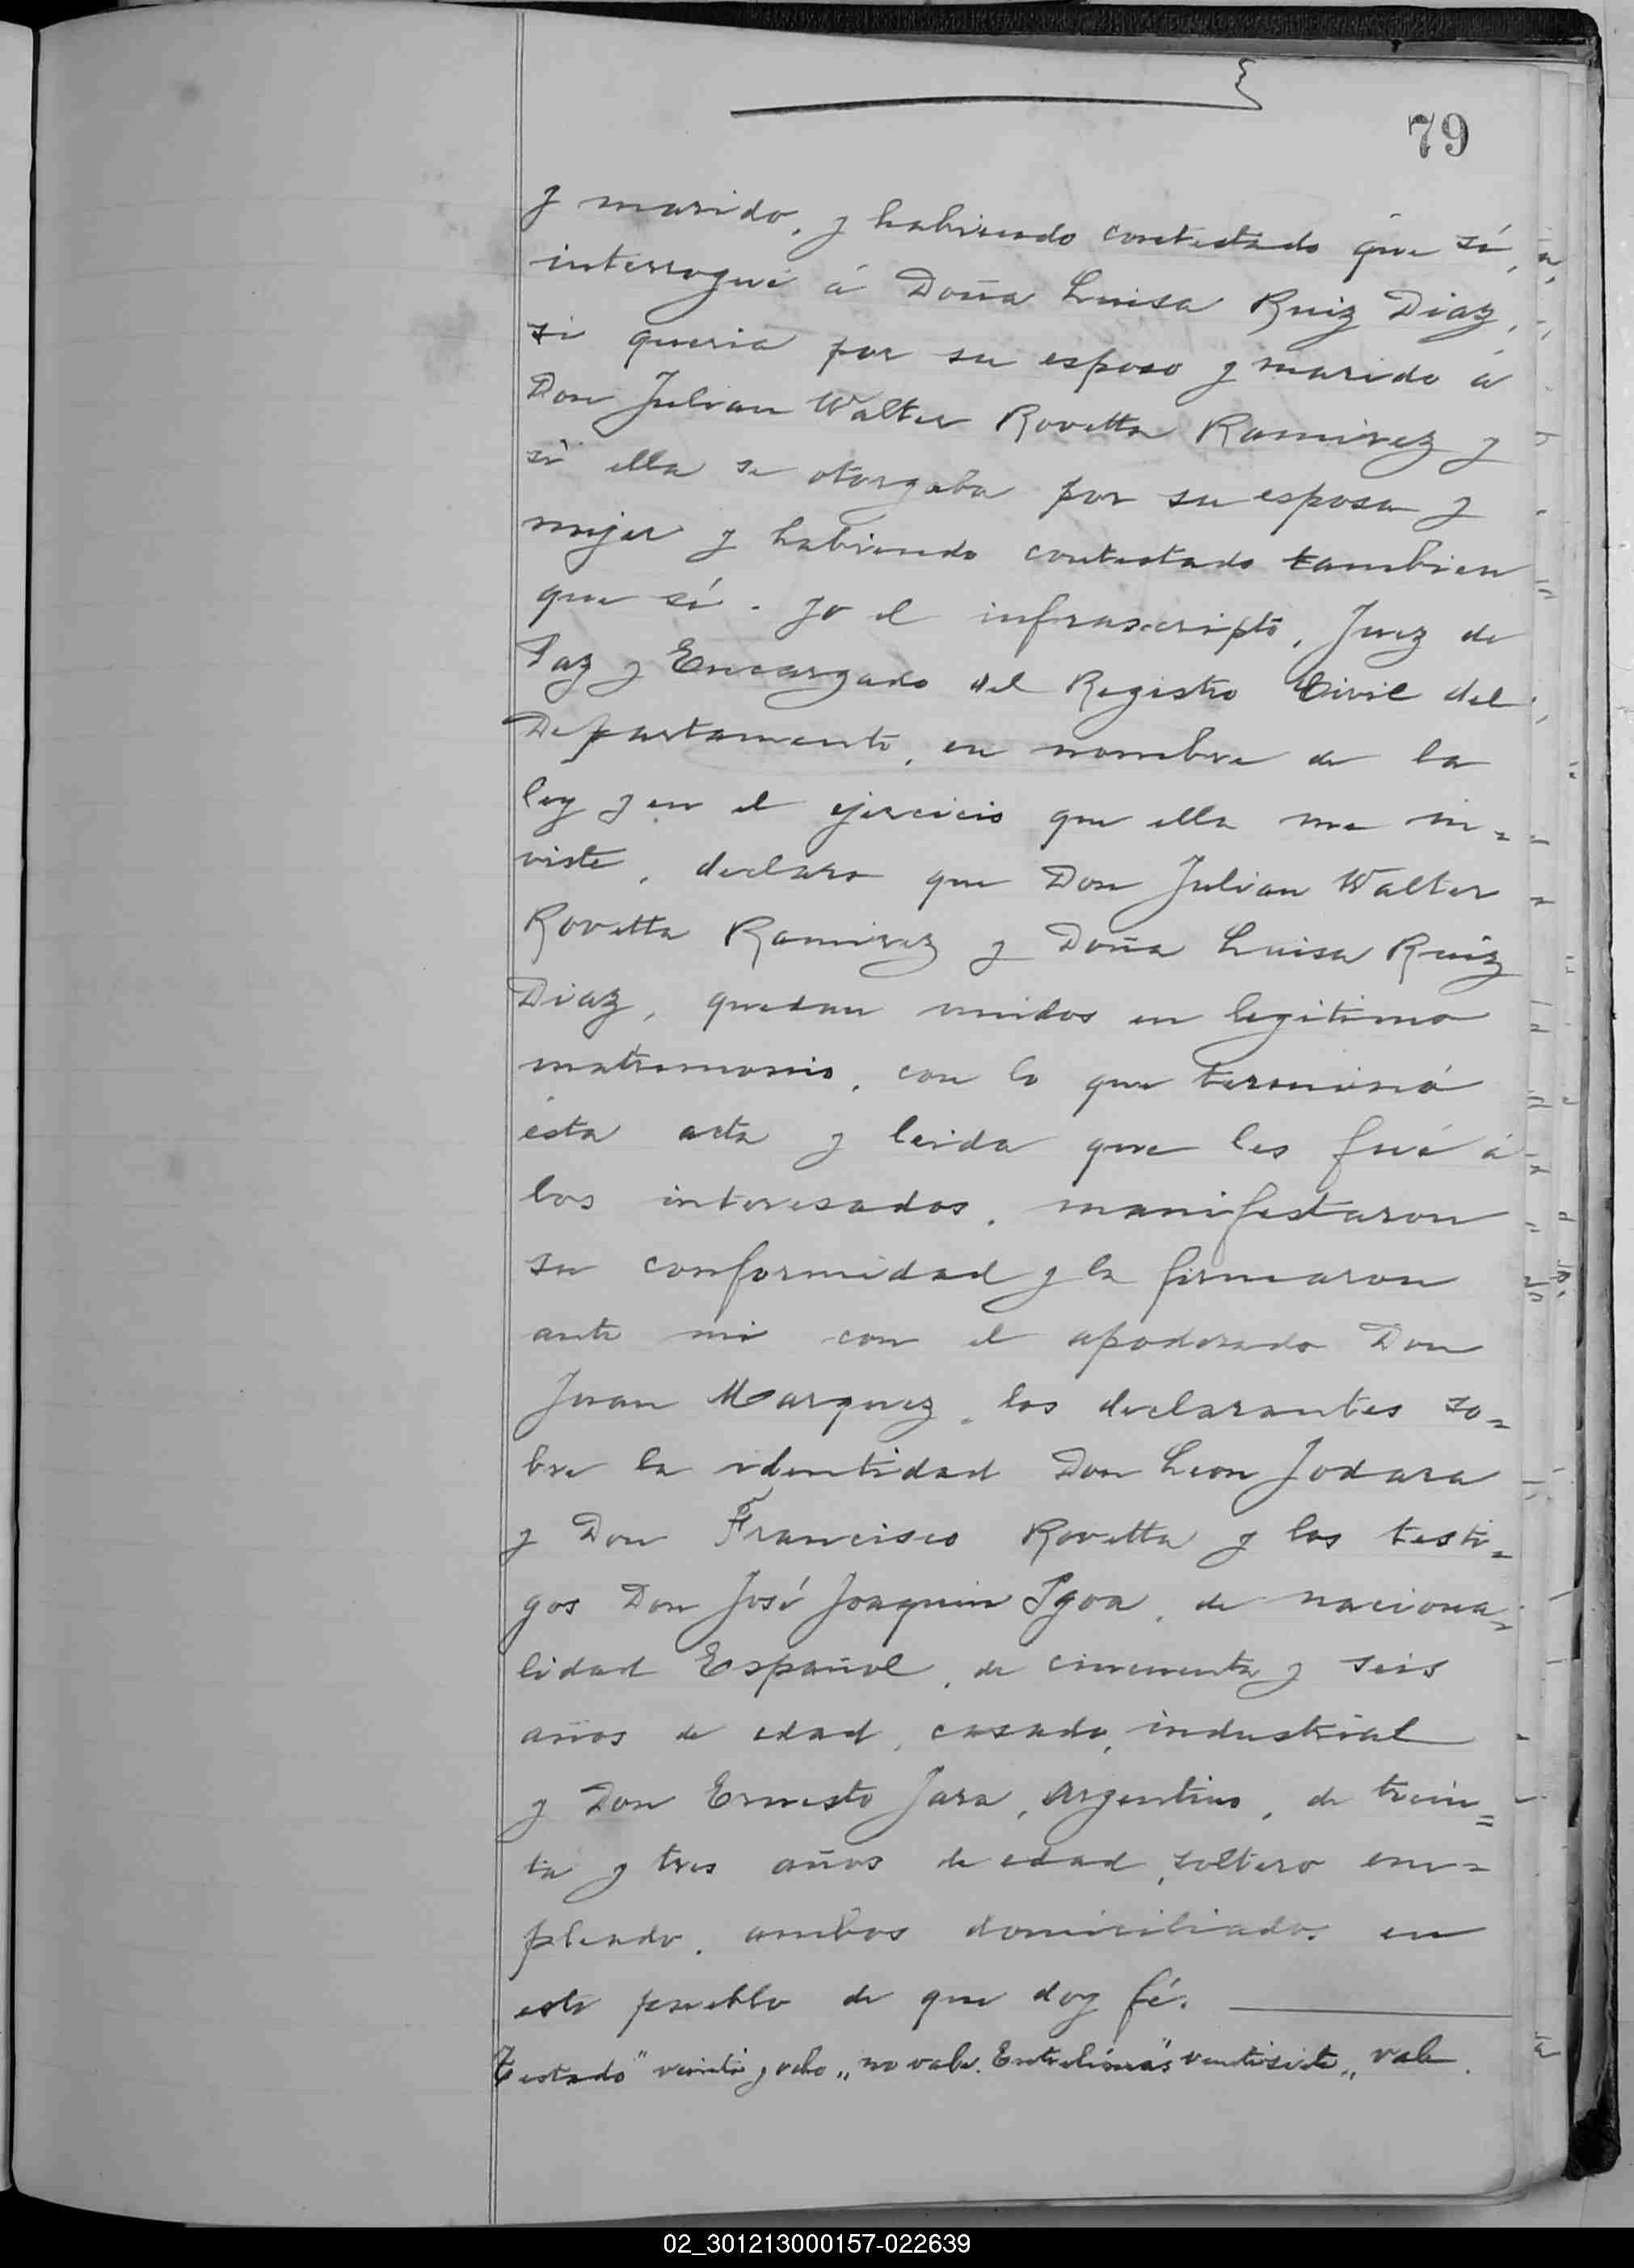 79
y marido, y habiendo contestado que sí,
interrogué á Doña Luisa Ruiz Diaz,
si queria por su esposo y marido á
Don Julian Walter Rovetta Ramirez y
si ella se otorgaba por su esposa y
mujer y habiendo contestado tambien
que sí. Yo el infrascripto, Juez de
Paz y Encargado del Registro Civil del
Departamento, en nombre de la
ley y en el ejercicio que ella me in=
viste, declaro que Don Julian Walter
Rovetta Ramirez y Doña Luisa Ruiz
Diaz, quedan unidos en legitimo
matrimonio, con lo que terminó
ésta acta y leida que les fué á
los interesados, manifestaron
su conformidad y la firmaron
ante mi con el apoderado Don
Juan Marquez, los declarantes so=
bre la identidad Don Leon Jodara
y Don Francisco Rovetta y los testi=
gos Don José Joaquin Ygoa, de naciona=
lidad Español, de cincuenta y seis
años de edad, casado, industrial
y Don Ernesto Jara, Argentino, de trein=
ta y tres años de edad, soltero em=
pleado, ambos domiciliados en
este pueblo de que doy fé.
Testado "veinte y ocho" no vale. Entrelineas "veintisiete" vale.
02_301213000157-022639